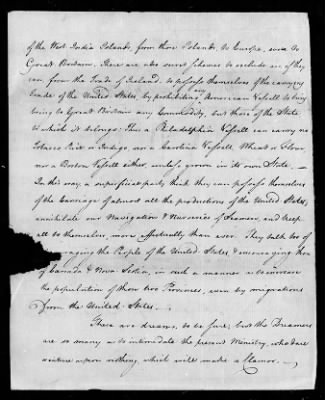 of the West India Islands, from those Islands to Europe, even to
Great Britain. There are also secret schemes to exclude us, if they
can, from the Trade of Ireland, to possess themselves of the carrying
trade of the United States, by prohibiting any American Vessell to bring
to Great Britain any Commodity, but those of the State
to which it belongs: Thus a Philadelphia Vessell can carry no
Tobacco Rice or Indigo, nor a Carolina Vessell Wheat or Flour
nor a Boston Vessell either, unless grown in its own State.—
In this way, a superficial party think they can possess themselves
of the Carriage of almost all the productions of the United States,
annihilate our Navigation & Nurseries of Seamen, and keep
all to themselves, more effectually than ever. They talk too of
raging the People of the United States & encouraging those
of Canada & Nova Scotia, in such a manner as to increase
the population of those two Provinces, even by migrations
from the United States.—
These are dreams, to be sure, but the Dreamers
are so many as to intimidate the present Ministry, who dare
venture upon nothing, which will make a Clamor.—